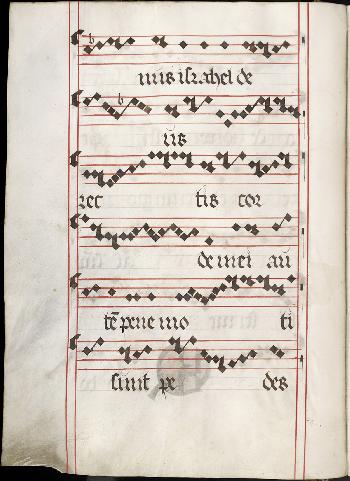 nus israhel de
us
rec tis cor
de mei au
tē pene mo ti
sunt pe des